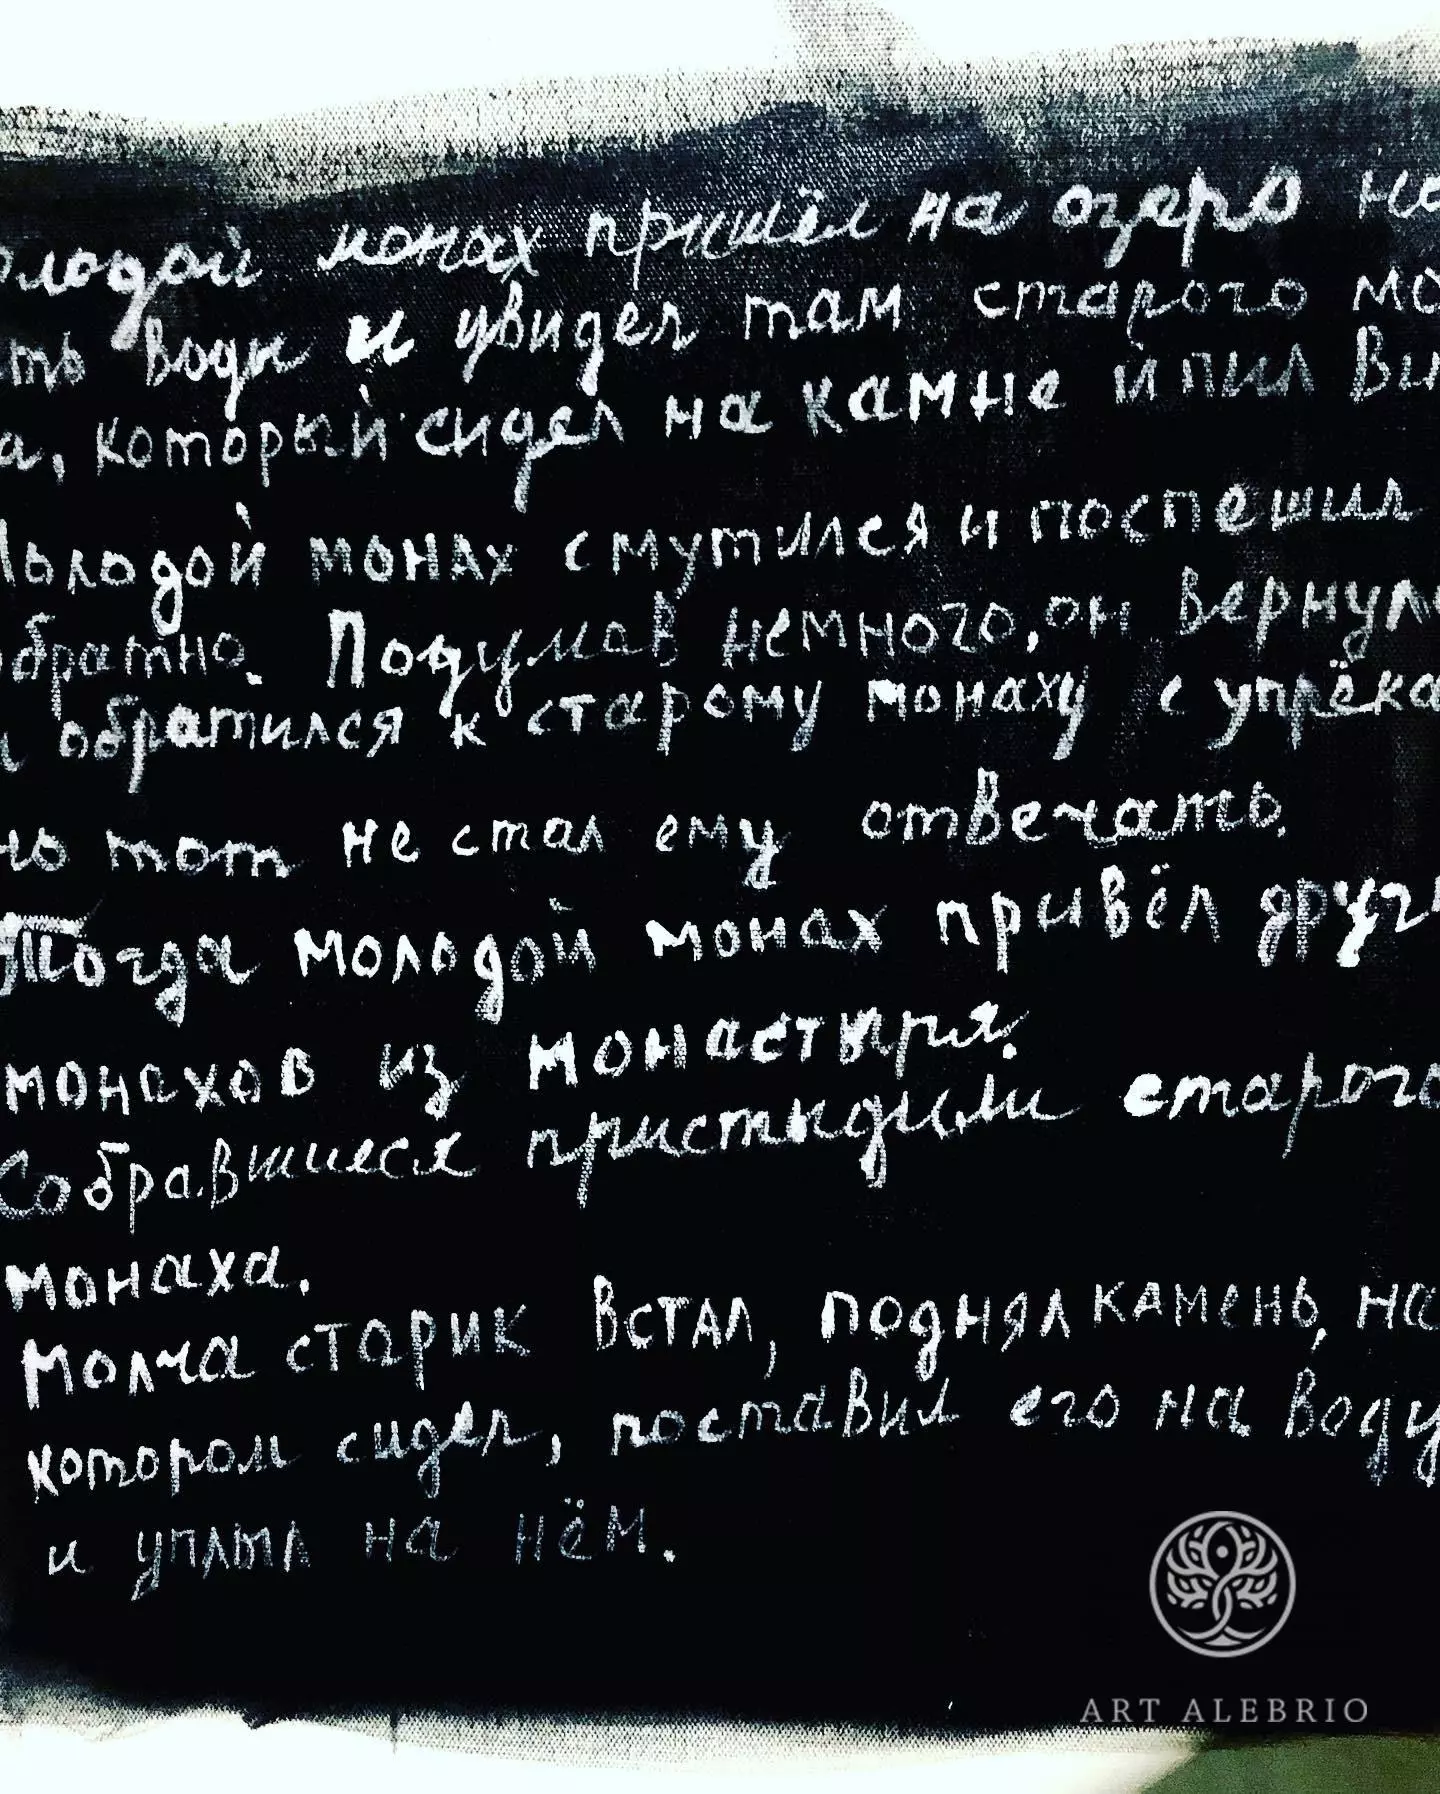 олодой монах пришёл на озеро на
ть воды и увидел там старого мо
а, который сидел на камне и пил ви
Молодой монах смутился и поспешил
обратно. Подумав немного, он вернул
и обратился к старому монаху с упрёка
но тот не стал ему отвечать.
Тогда молодой монах привёл друг
монахов из монастыря.
Собравшиеся пристыдили старого
монаха.
Молча старик встал, поднял камень, на
котором сидел, поставил его на воду
и уплыл на нём.
ART ALEBRIO